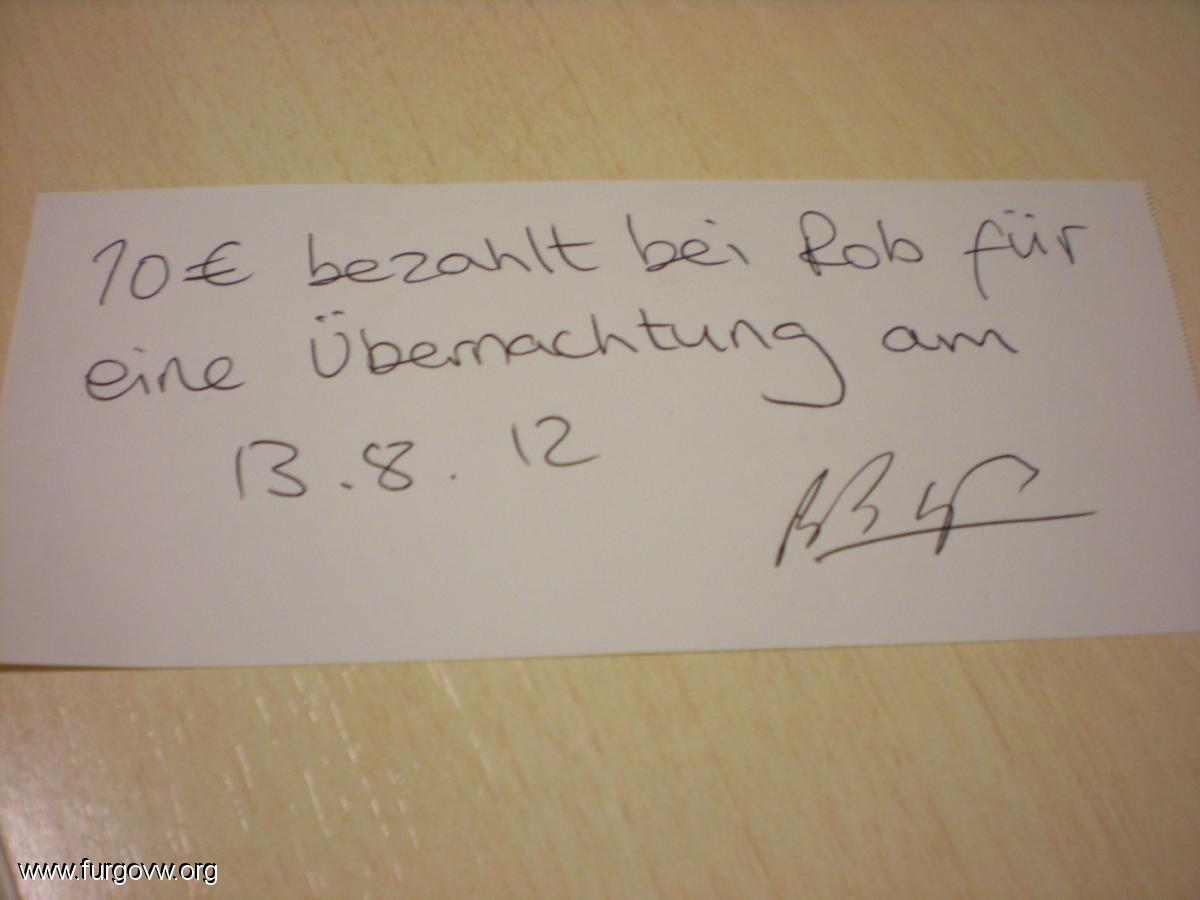 10€ bezahlt bei Rob für
eine Übernachtung am
13.8.12
www.furgovw.org